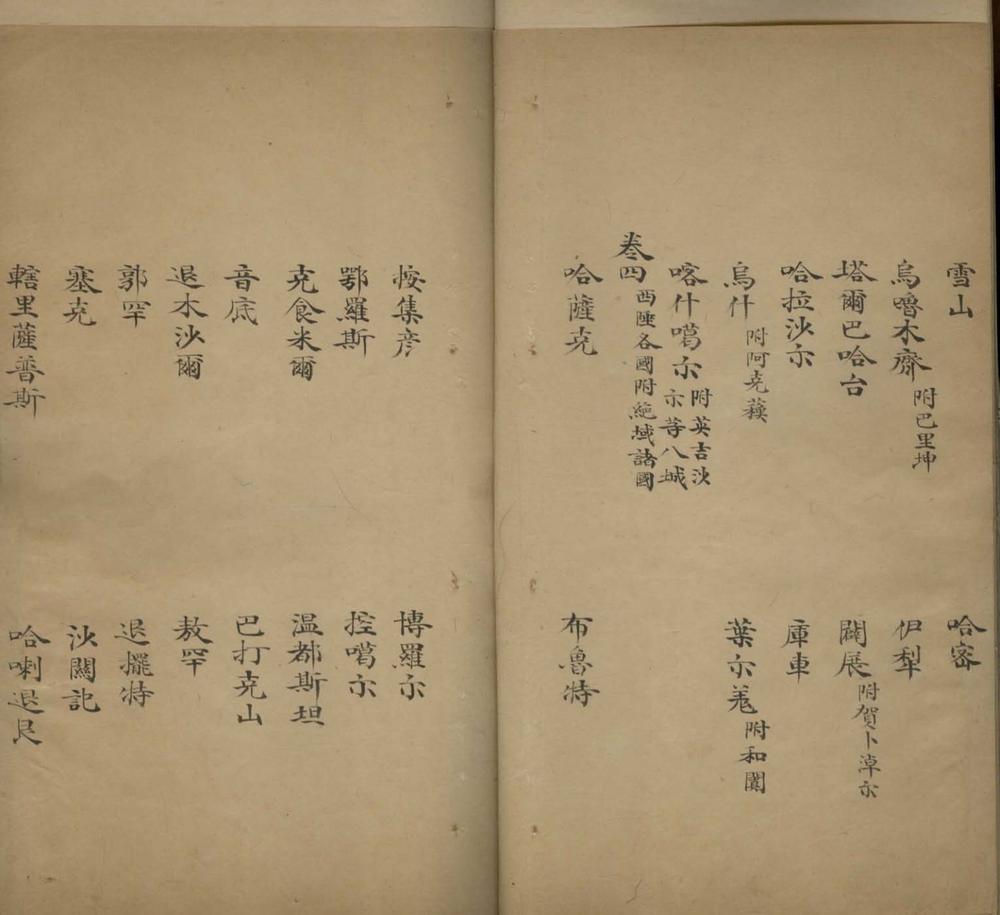 雪山　哈密
烏嚕木齊附巴里坤　伊犁
塔爾巴哈台　闢展附賀卜淖尔
哈拉沙尔　庫車
烏什附阿克蘓　葉尔羌附和闐
喀什噶尔附英吉沙尔等八城
卷四西陲各國附絕域諸國
哈薩克　布魯特
按集彥　博羅尔
鄂羅斯　控噶尔
克食米爾　温都斯坦
音底　巴打克山
退木沙爾　敖罕
郭罕　退擺特
塞克　沙關記
轄里薩普斯　哈喇退艮